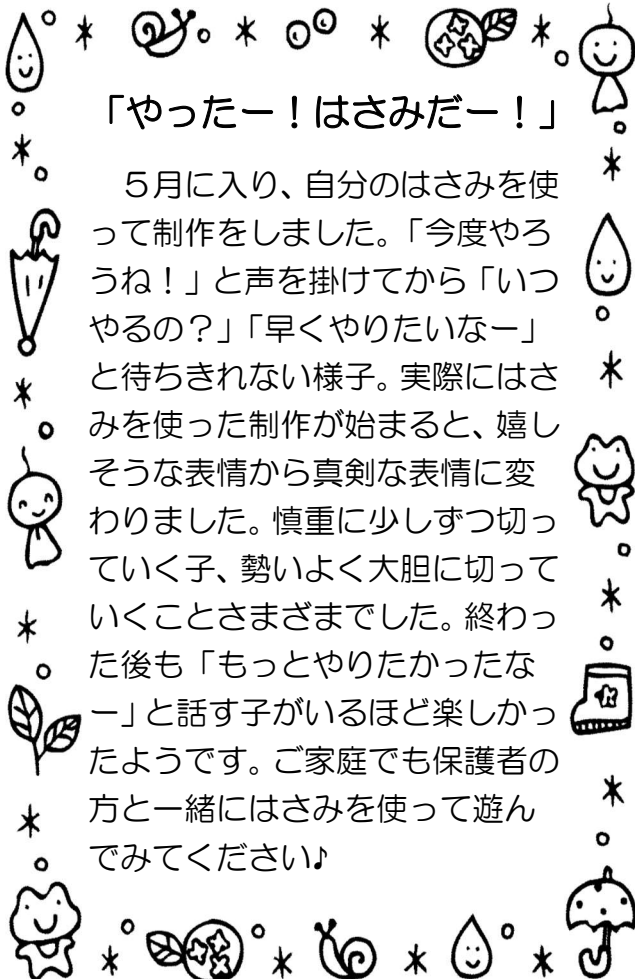 「やったー！はさみだー！」
５月に入り、自分のはさみを使
って制作をしました。「今度やろ
うね！」と声を掛けてから「いつ
やるの？」「早くやりたいなー」
と待ちきれない様子。実際にはさ
みを使った制作が始まると、嬉し
そうな表情から真剣な表情に変
わりました。慎重に少しずつ切っ
ていく子、勢いよく大胆に切って
いくことさまざまでした。終わっ
た後も「もっとやりたかったな
ー」と話す子がいるほど楽しかっ
たようです。ご家庭でも保護者の
方と一緒にはさみを使って遊ん
でみてください♪